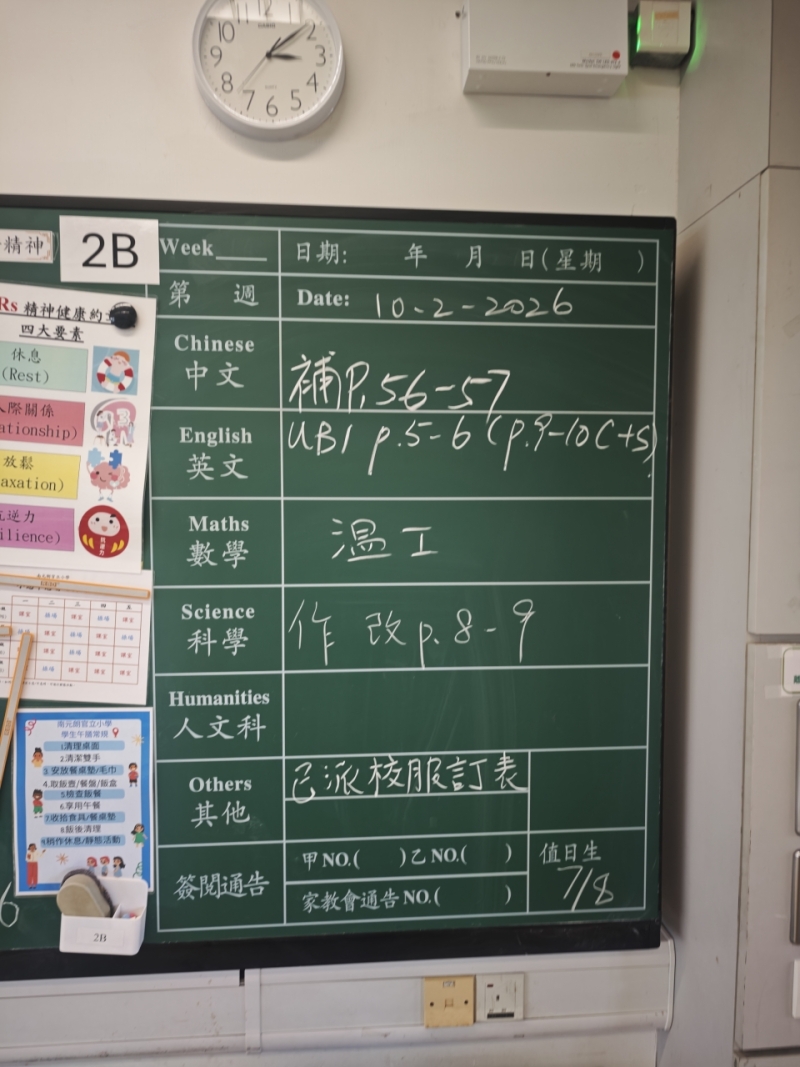 12
10
2
9
3
8
4
7
6
5
CASIO
精神
2B
Week
日期: 年 月 日(星期 )
第 週
Date: 10-2-2026
Rs 精神健康約章
四大要素
休息
(Rest)
人際關係
ationship)
放鬆
axation)
抗逆力
ilience)
Chinese
中文
補P.56-57
English
英文
UB1 p.5-6 (p.9-10 C+S)
Maths
數學
溫工
Science
科學
作 改 p.8-9
Humanities
人文科
Others
其他
已派校服訂表
簽閱通告
甲NO.( )乙NO.( )
家教會通告NO.( )
值日生
7/8
一 二 三 四 五
南元朗官立小學
學生午膳常規
1清理桌面
2.清潔雙手
3.安放餐桌墊/毛巾
4.取飯壺/餐盤/飯盒
5檢查飯餐
6.享用午餐
7.收拾食具/餐桌墊
8.飯後清理
9.稍作休息/靜態活動
6
2B